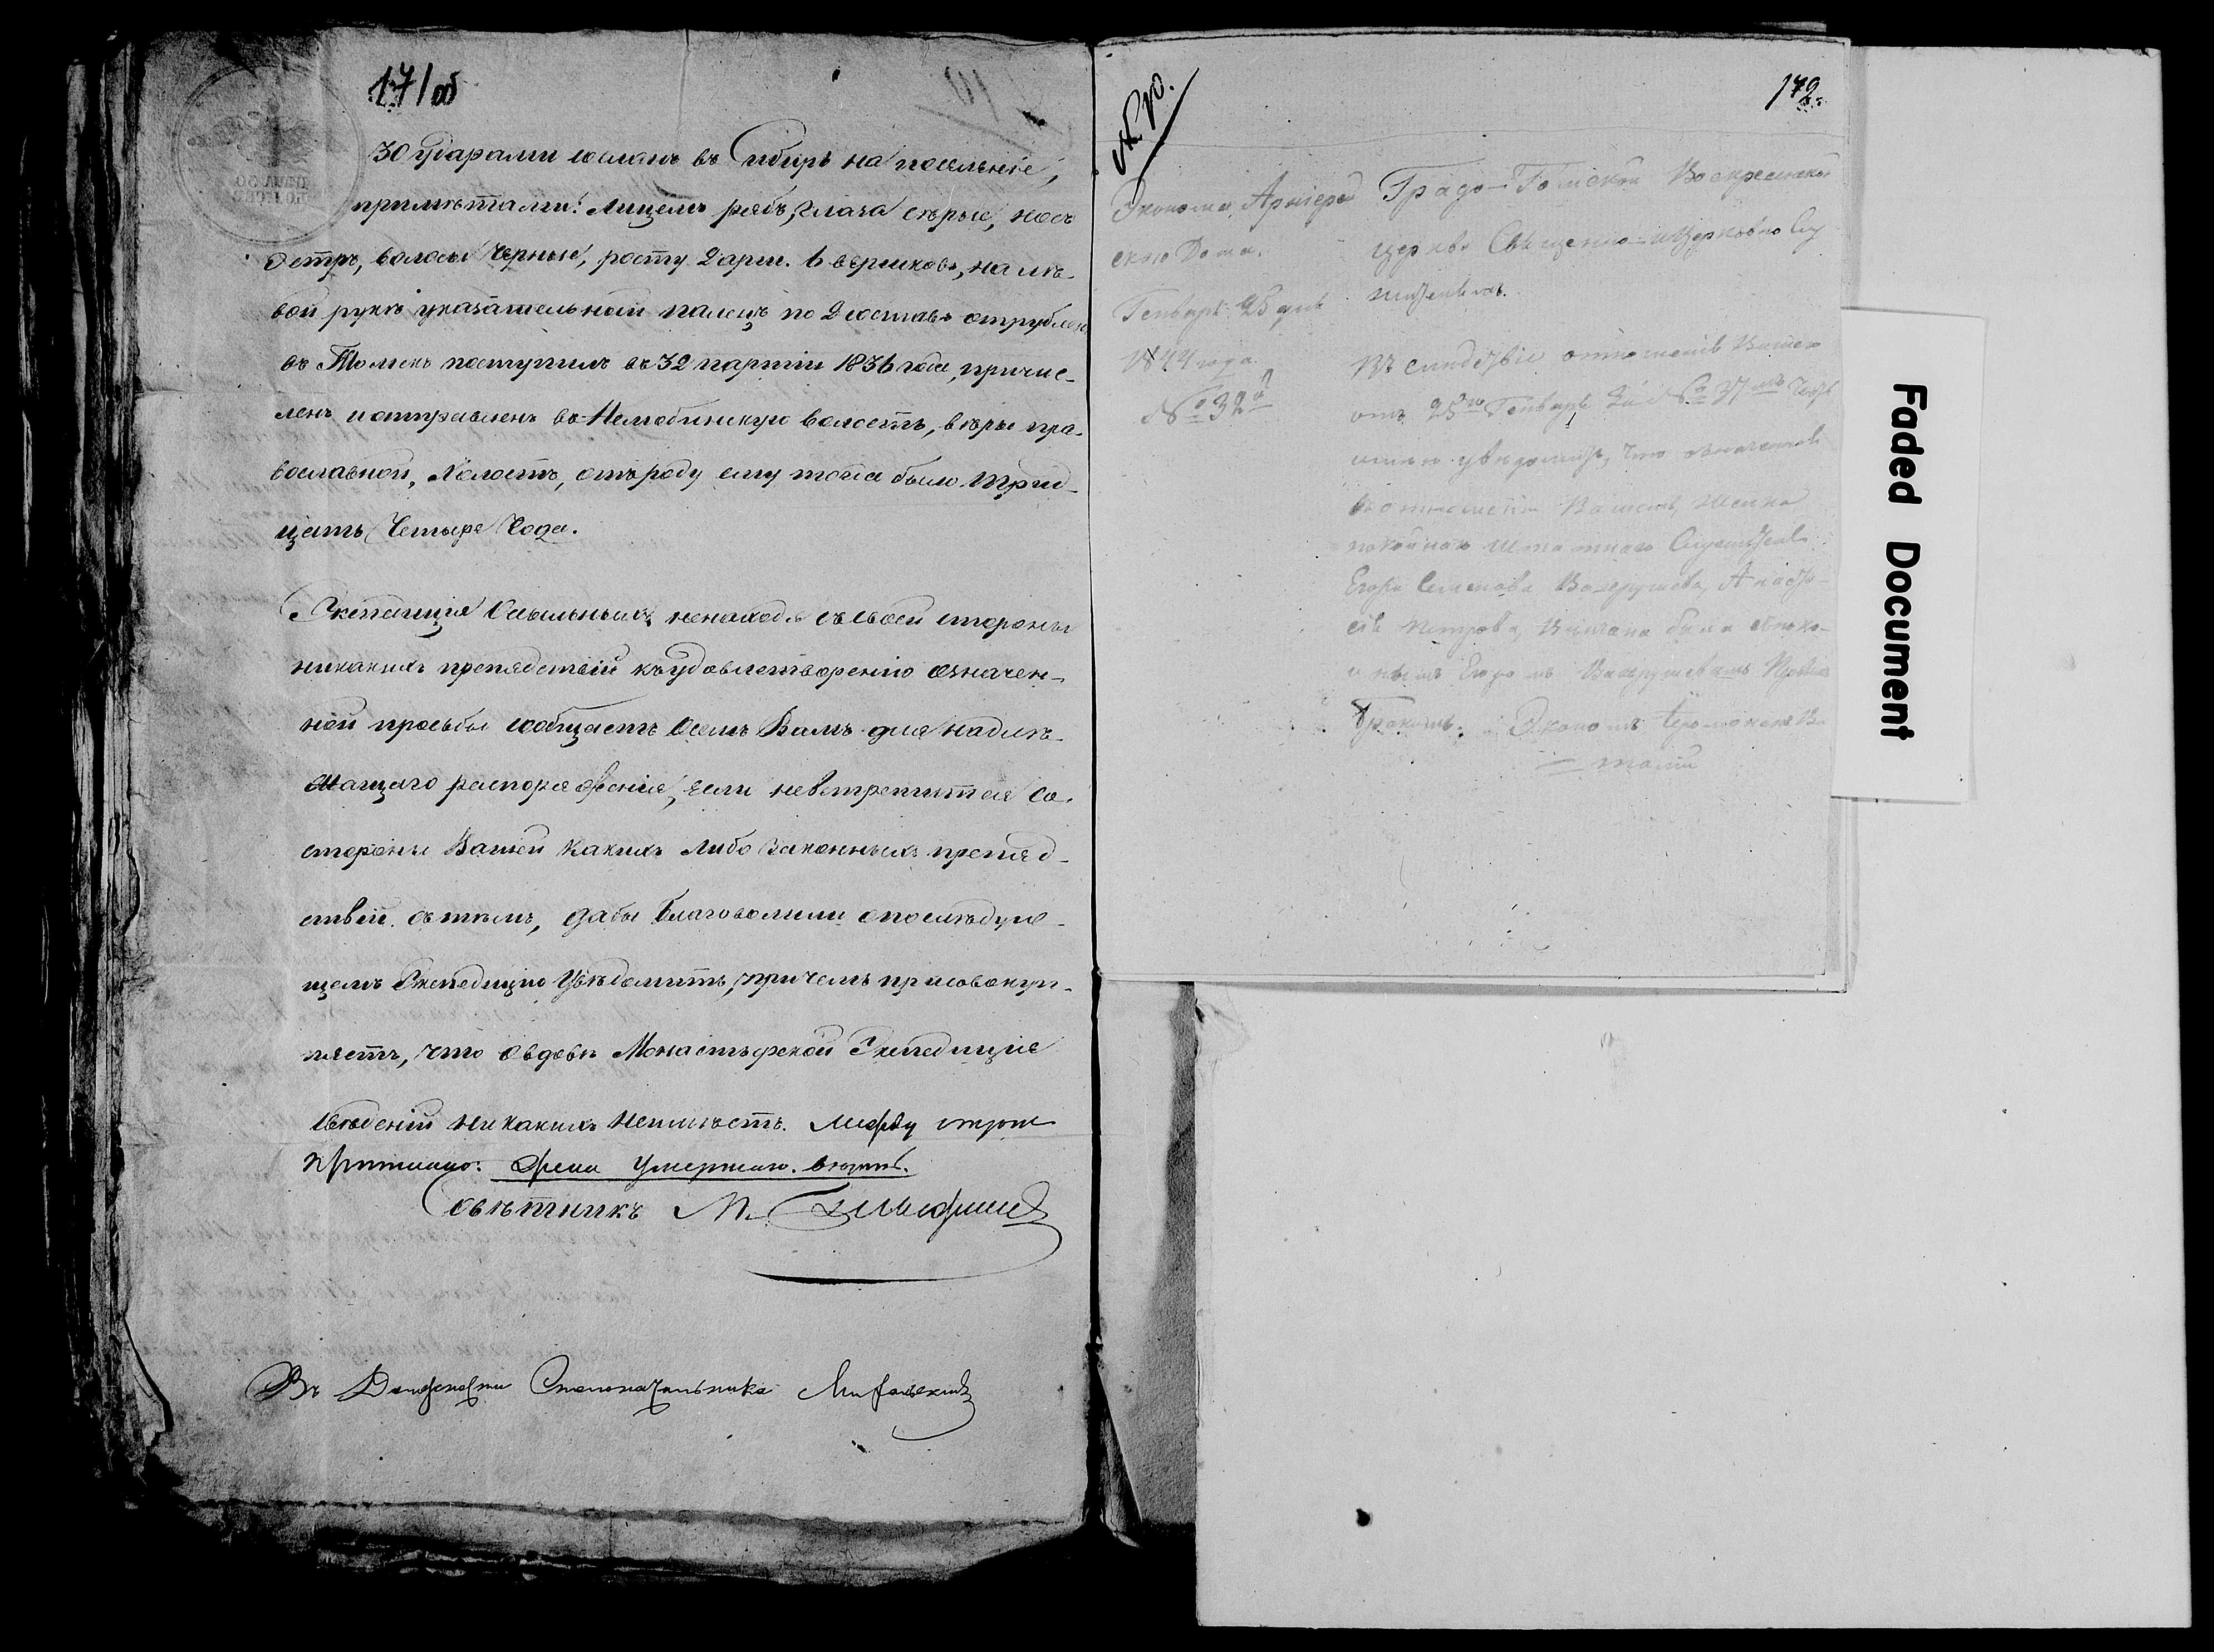 171 об
30 ударами сосланъ въ Сибирь на поселеніе,
примѣтами: Лицемъ рябъ, глаза сѣрые, носъ
остръ, волосы черные, росту 2 арш. 6 вершковъ, на лѣ-
вой рукѣ указательной палецъ по 2 составъ отрубленъ
въ Томскъ поступилъ въ 32 партіи 1836 года, причис-
ленъ и отправленъ въ Нелюбинскую волость, вѣры пра-
вославной, Холостъ, отъ роду ему тогда было трид-
цать Четыре Года.
Экспедиція Ссыльныхъ ненаходя съ своей стороны
никакихъ препядствій къ удовлетворенію означен-
ной просьбы сообщаетъ о семъ Вамъ для надлѣ-
жащаго распоряженія, если невстретится со
стороны Вашей какихъ либо законныхъ препяд-
ствій съ тѣмъ, дабы благоволили опослѣдую-
щемъ Экспедицію Увѣдомить, причемъ присовокуп-
ляетъ, что о вдовѣ Монастырской Экспедиція
свѣденій никакихъ неимѣетъ. Между строк
Совѣтникъ М.
Въ Должности Столоначальника
172.
Эконома Архіерей
скаго Дома.
Генваря 25 дня
1844 года.
№ 32
Градо-Томской Воскресенской
церкви Священно-и Церковно Слу
жителямъ.
Въ слѣдствіе отношенія Вашего
отъ 25го Генваря за № 37мъ Честь
имѣю увѣдомить, что означенная
въ отношеніи Вашемъ, Женка
покойнаго Штатнаго Служителя
Егора Семенова Вахрушева,
Петрова, Вѣнчана была съ поко-
инымъ Егоромъ Вахрушевымъ
Бракомъ. Экономъ Іеромонахъ Ви
талій
Faded Document